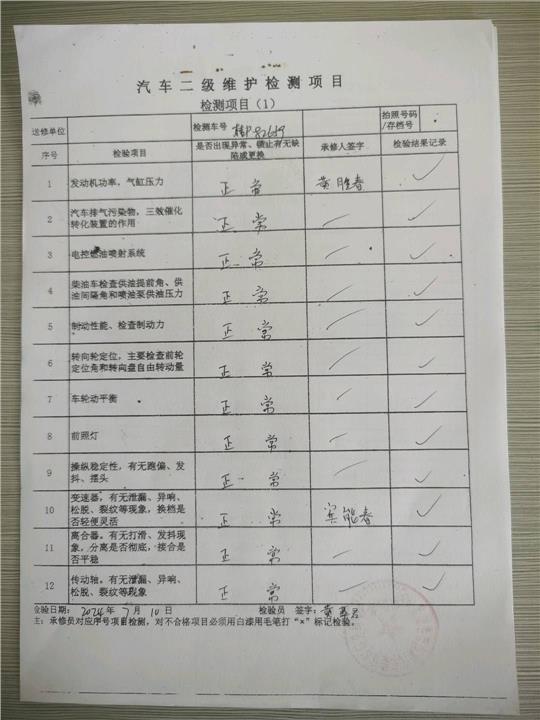 汽车二级维护检测项目
检测项目（1）
送修单位 检测车号 拍照号码/存档号
序号 检验项目 是否出现异常、锁止有无缺陷或更换 承修人签字 检验结果记录
1 发动机功率，气缸压力 正常 ✓
2 汽车排气污染物，三效催化转化装置的作用 正常 ✓
3 电控燃油喷射系统 正常 ✓
4 柴油车检查供油提前角、供油间隔角和喷油泵供油压力 正常 ✓
5 制动性能、检查制动力 正常 ✓
6 转向轮定位，主要检查前轮定位角和转向盘自由转动量 正常 ✓
7 车轮动平衡 正常 ✓
8 前照灯 正常 ✓
9 操纵稳定性，有无跑偏、发抖、摆头 正常 ✓
10 变速器，有无泄漏、异响、松脱、裂纹等现象，换档是否轻便灵活 正常 ✓
11 离合器，有无打滑、发抖现象，分离是否彻底，接合是否平稳 正常 ✓
12 传动轴，有无泄漏、异响、松脱、裂纹等现象 正常 ✓
验日期：2024年7月10日 检验员 签字：
主：承修员对应序号项目检测，对不合格项目必须用白漆用毛笔打“×”标记检验。